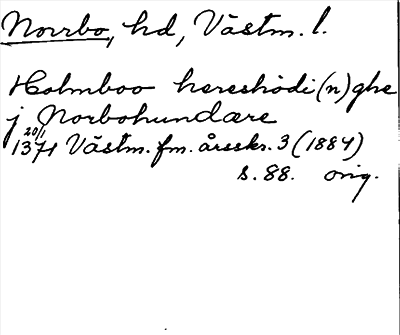 Norrbo, hd, Västm. l.
Holmboo hæreshödi(n)ghe
j Norbohundære
20/1
1371 Västm. fm. årsskr. 3 (1884)
s. 88. orig.